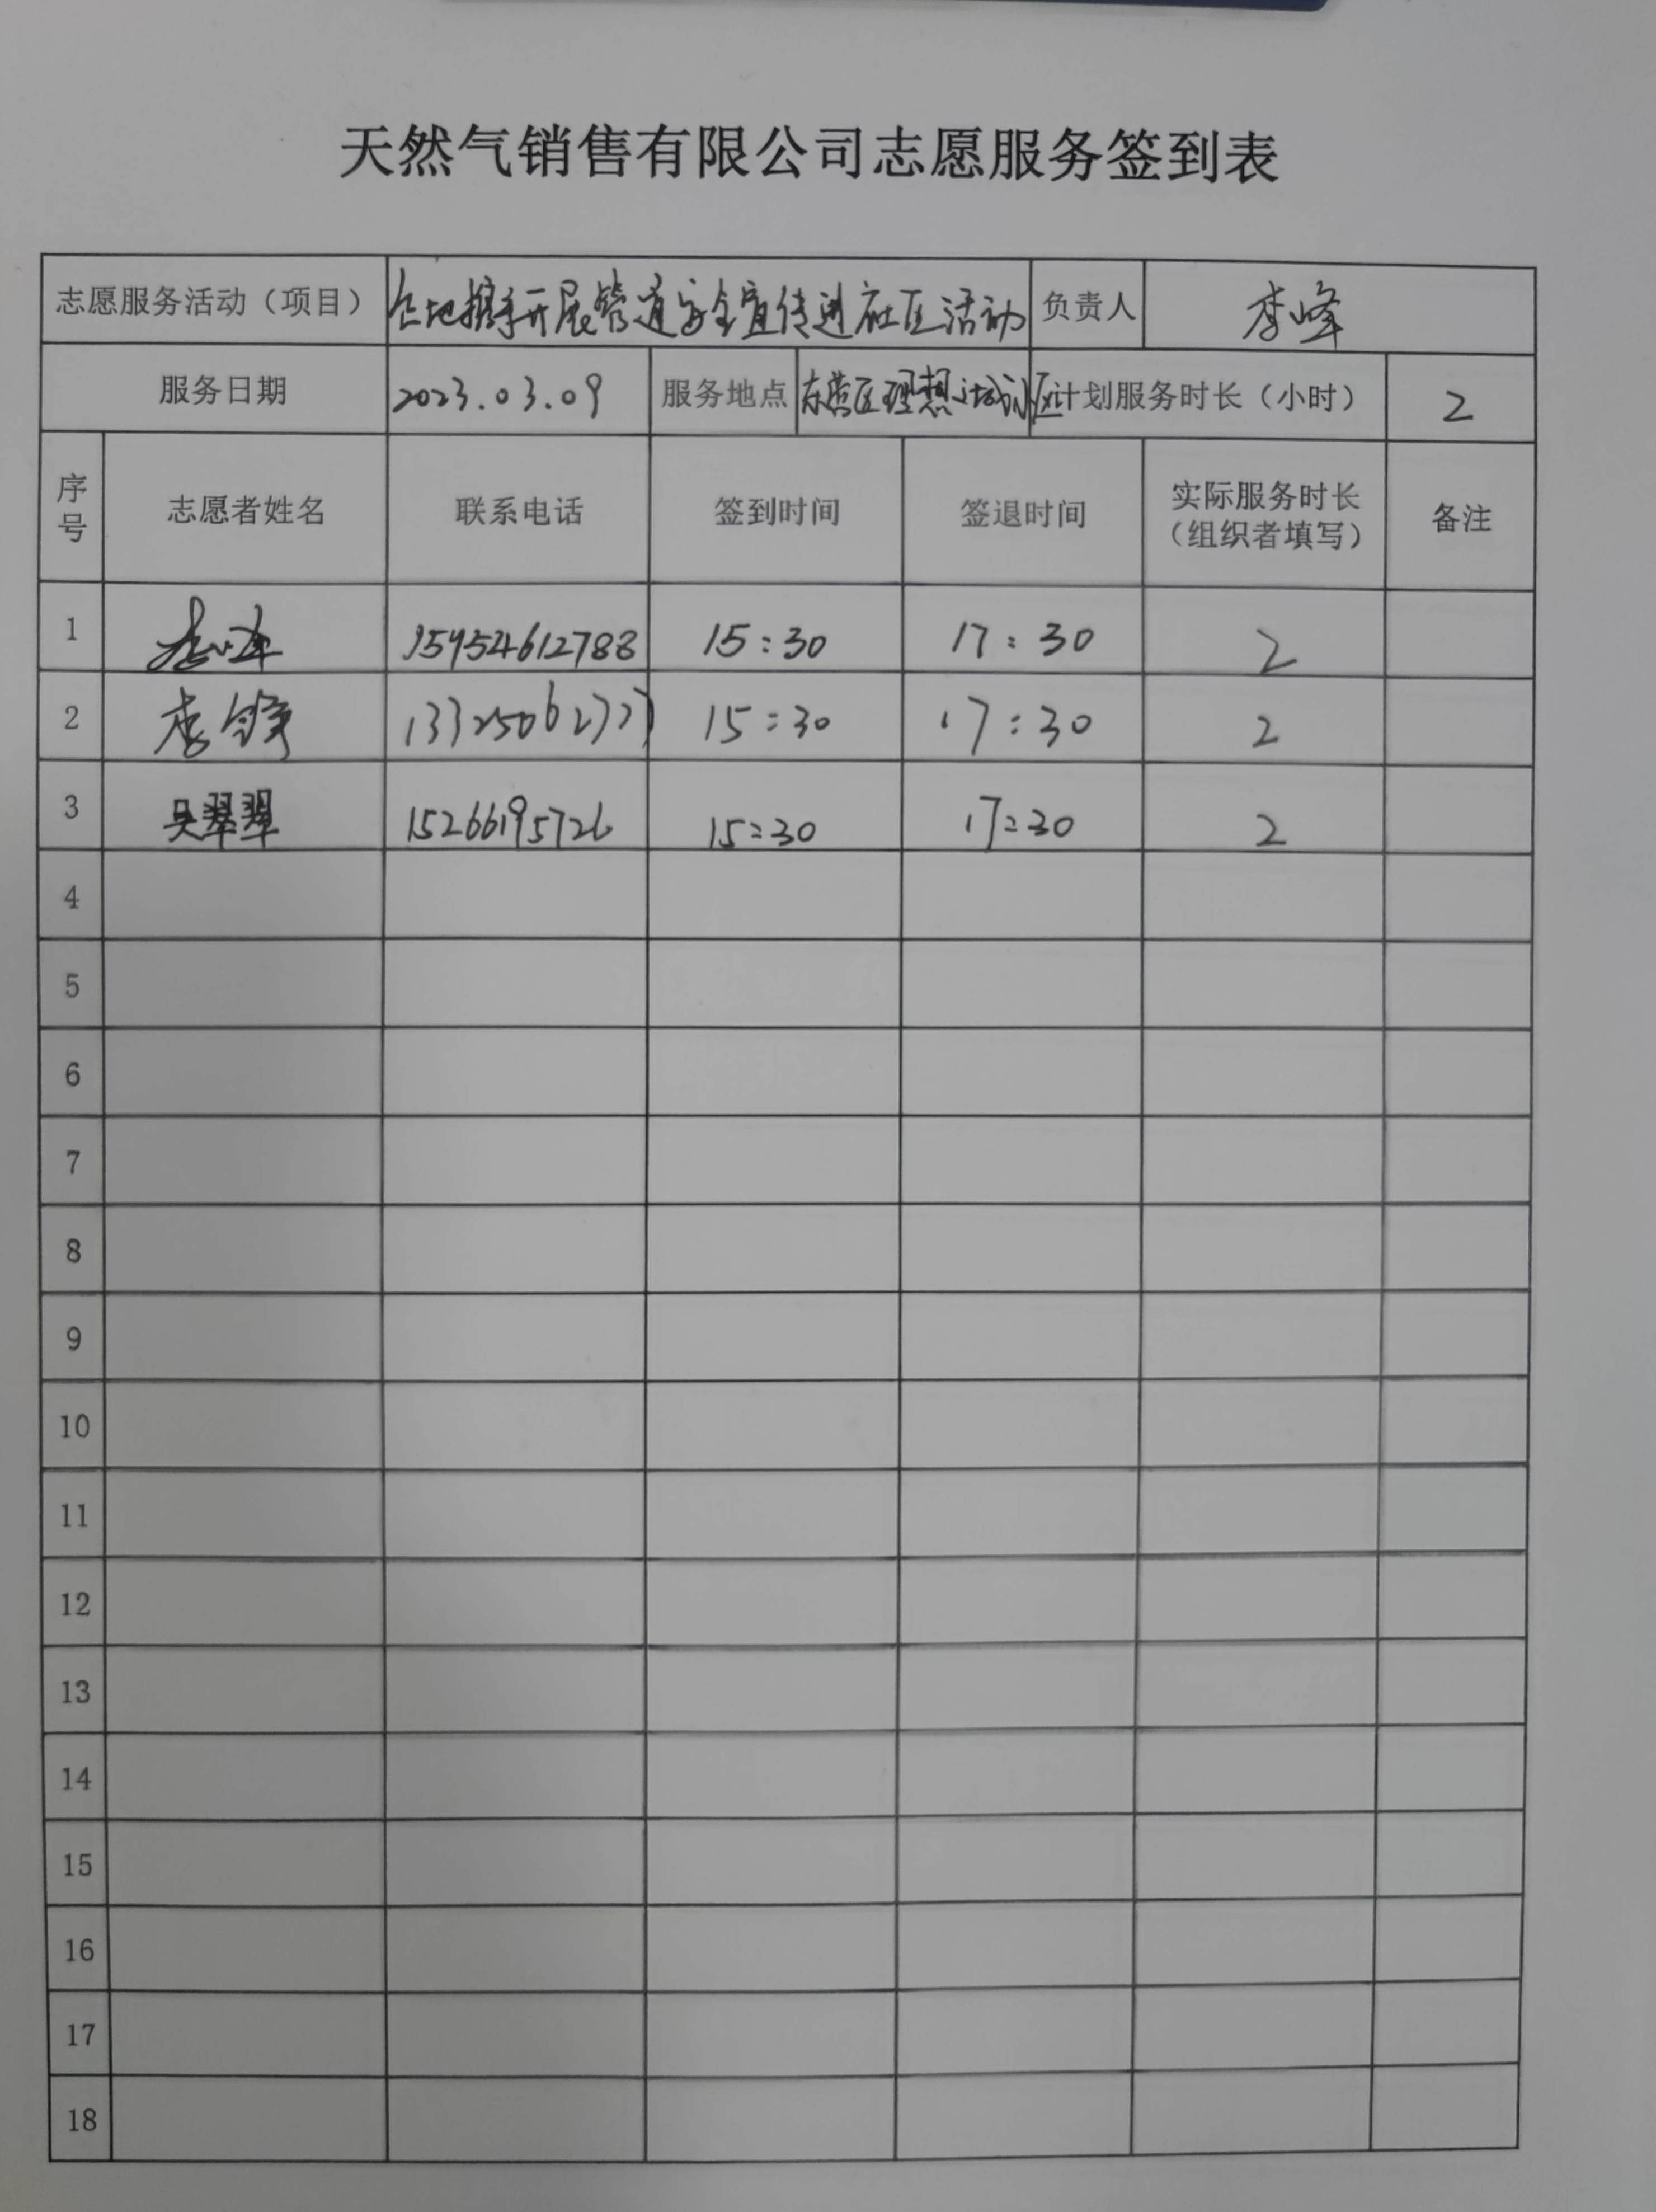 天然气销售有限公司志愿服务签到表
志愿服务活动（项目） 企地携手开展管道安全宣传进社区活动 负责人 李峰
服务日期 2023.03.09 服务地点 东营区理想之城小区 计划服务时长（小时） 2
序号 志愿者姓名 联系电话 签到时间 签退时间 实际服务时长（组织者填写） 备注
1 李峰 15954612788 15:30 17:30 2
2 李铮 15:30 17:30 2
3 吴翠翠 15266195726 15:30 17:30 2
4
5
6
7
8
9
10
11
12
13
14
15
16
17
18